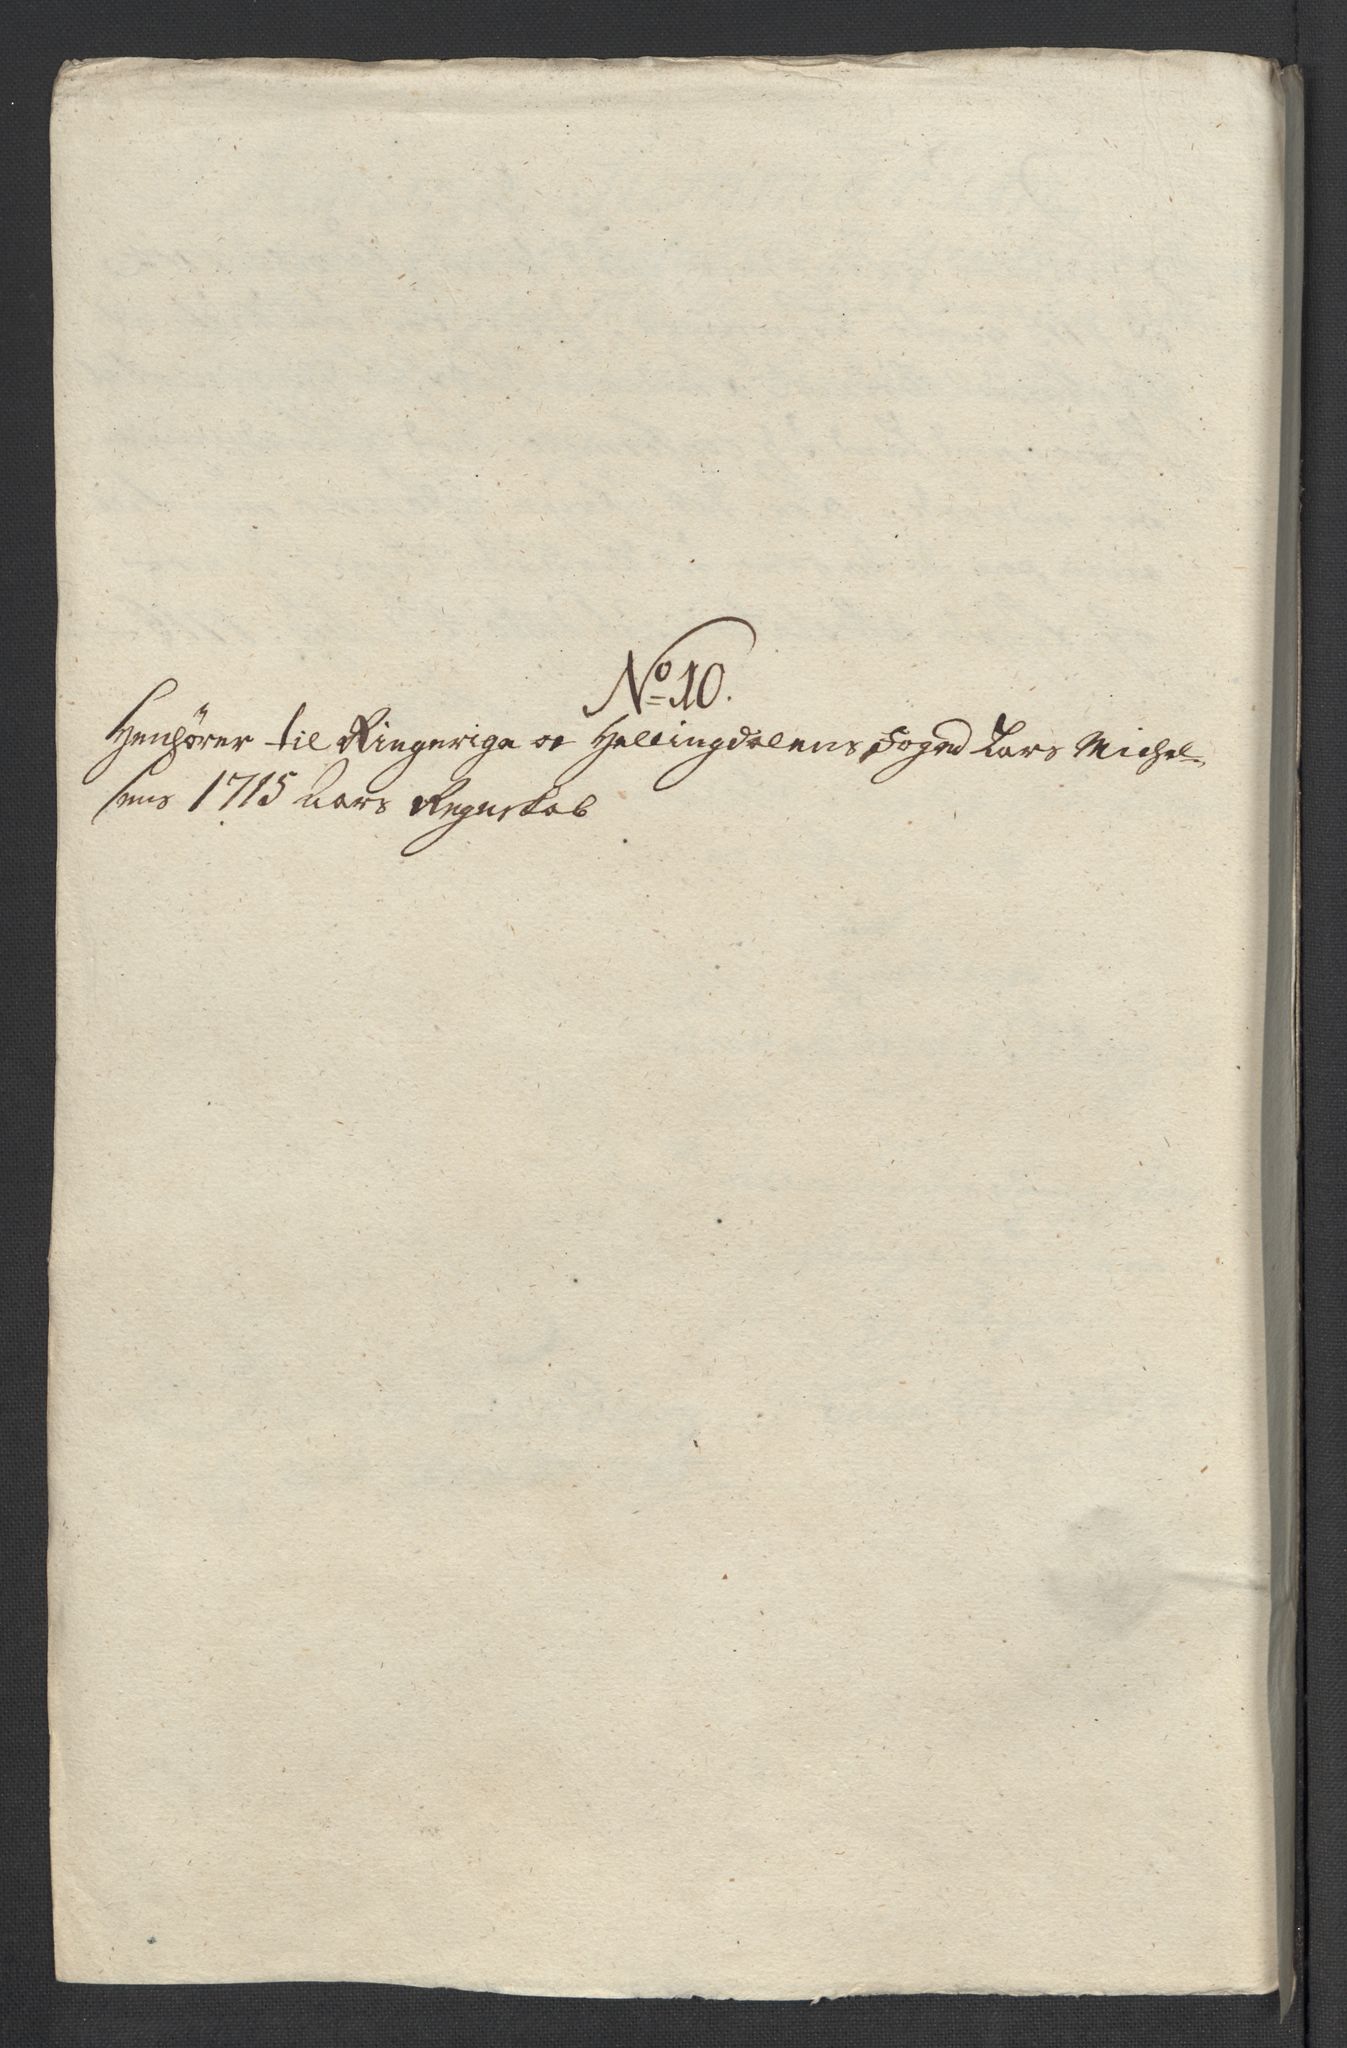 No 10.
Henhörer til Ringerige oc Hallingdalens Foged Lars Michel-
sens 1715 Aars Regnskab